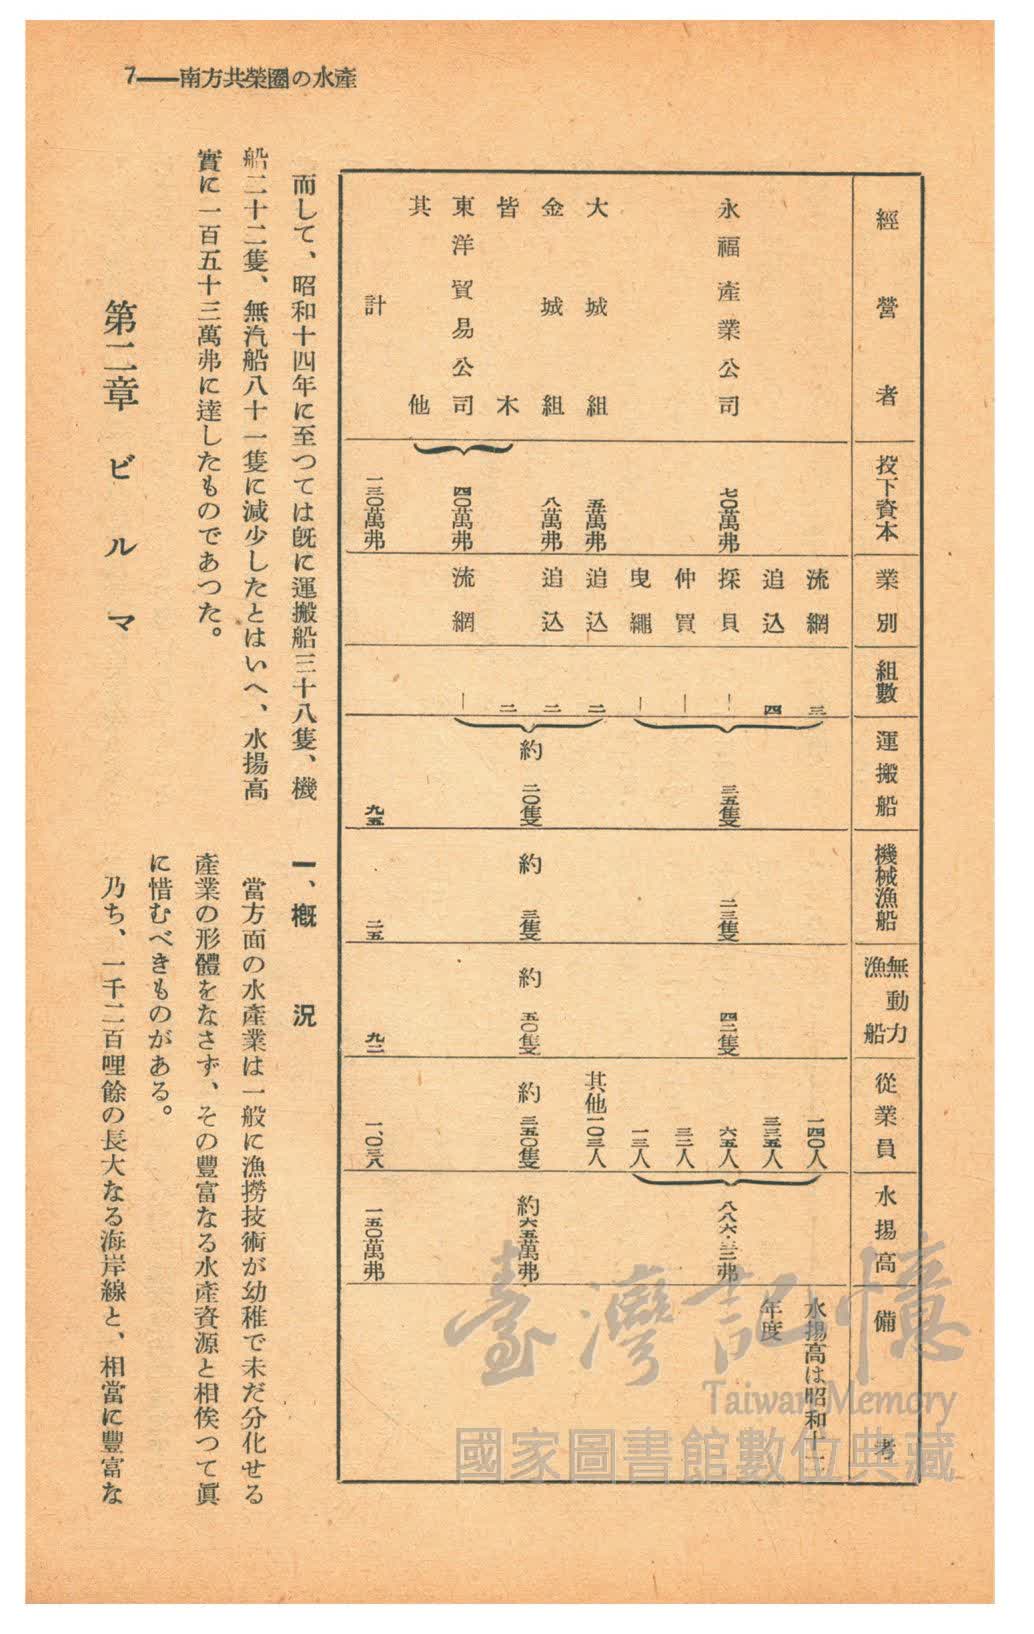 7——南方共榮圈の水產
經營者
投下資本
業別
組數
運搬船
機械漁船
無動力漁船
從業員
水揚高
備考
永福產業公司
七〇萬弗
流網
三
一四〇人
追込
四
三三五人
採貝
一
六五人
仲買
一
三二人
曳繩
一
一三人
三五隻
二三隻
四二隻
水揚高は昭和十一
年度
大城組
五萬弗
追込
二
其他一〇三人
金城組
八萬弗
追込
二
皆木
二
東洋貿易公司
四〇萬弗
流網
一
其他
約二〇隻
約三隻
約五〇隻
約三五〇隻
約六五萬弗
計
一三〇萬弗
九五
二五
九二
一、〇三八
一五〇萬弗
而して、昭和十四年に至つては旣に運搬船三十八隻、機
船二十二隻、無汽船八十一隻に減少したとはいへ、水揚高
實に一百五十三萬弗に達したものであつた。
第二章 ビルマ
一、槪況
當方面の水產業は一般に漁撈技術が幼稚で未だ分化せる
產業の形體をなさず、その豐富なる水產資源と相俟つて眞
に惜むべきものがある。
乃ち、一千二百哩餘の長大なる海岸線と、相當に豐富な
臺灣記憶
Taiwan Memory
國家圖書館數位典藏